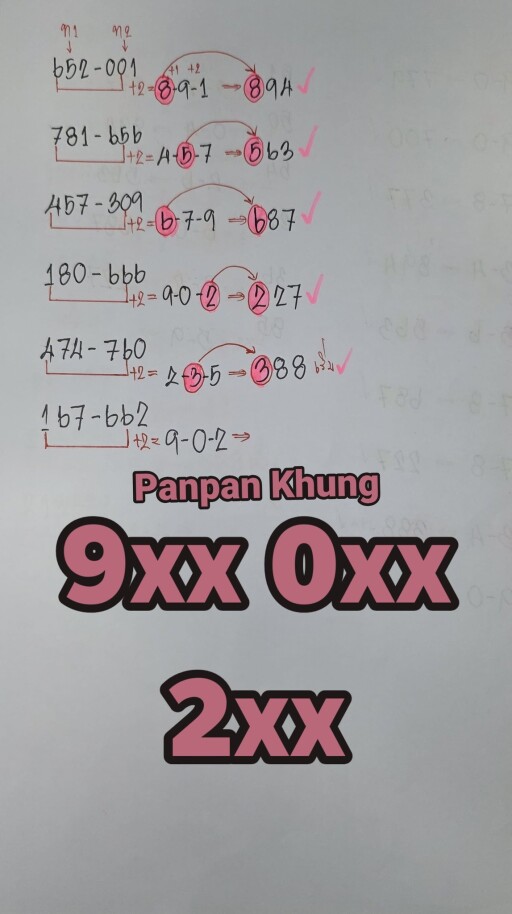 n1 n2
652-001
+1 +2
+2=8-9-1 → 894 ✓
781-656
+2=4-5-7 → 563 ✓
457-309
+2=6-7-9 → 687 ✓
180-666
+2=9-0-2 → 227 ✓
474-760
+2=2-3-5 → 388 ✓
167-662
+2=9-0-2 ⇒
Panpan Khung
9xx 0xx
2xx